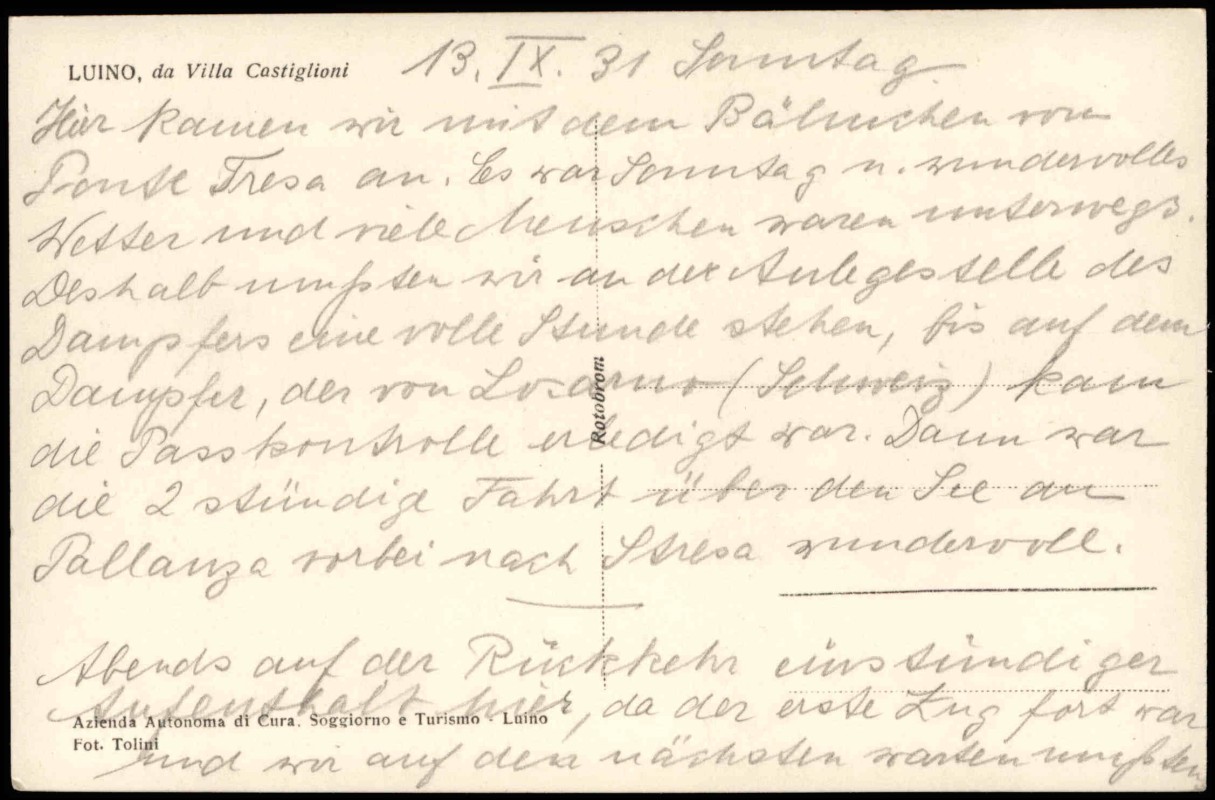 LUINO, da Villa Castiglioni
13. IX. 31 Sonntag
Hier kamen wir mit dem Bähnchen von
Ponte Tresa an. Es war Sonntag u. wundervolles
Wetter und viele Menschen waren unterwegs.
Deshalb mußten wir an der Anlegestelle des
Dampfers eine volle Stunde stehen, bis auf dem
Dampfer, der von Locarno (Schweiz) kam
die Passkontrolle erledigt war. Dann war
die 2 stündige Fahrt über den See an
Pallanza vorbei nach Stresa wundervoll.
Rotobrom
Abends auf der Rückkehr einstündiger
Aufenthalt hier, da der erste Zug fort war
und wir auf den nächsten warten mußten
Azienda Autonoma di Cura. Soggiorno e Turismo - Luino
Fot. Tolini